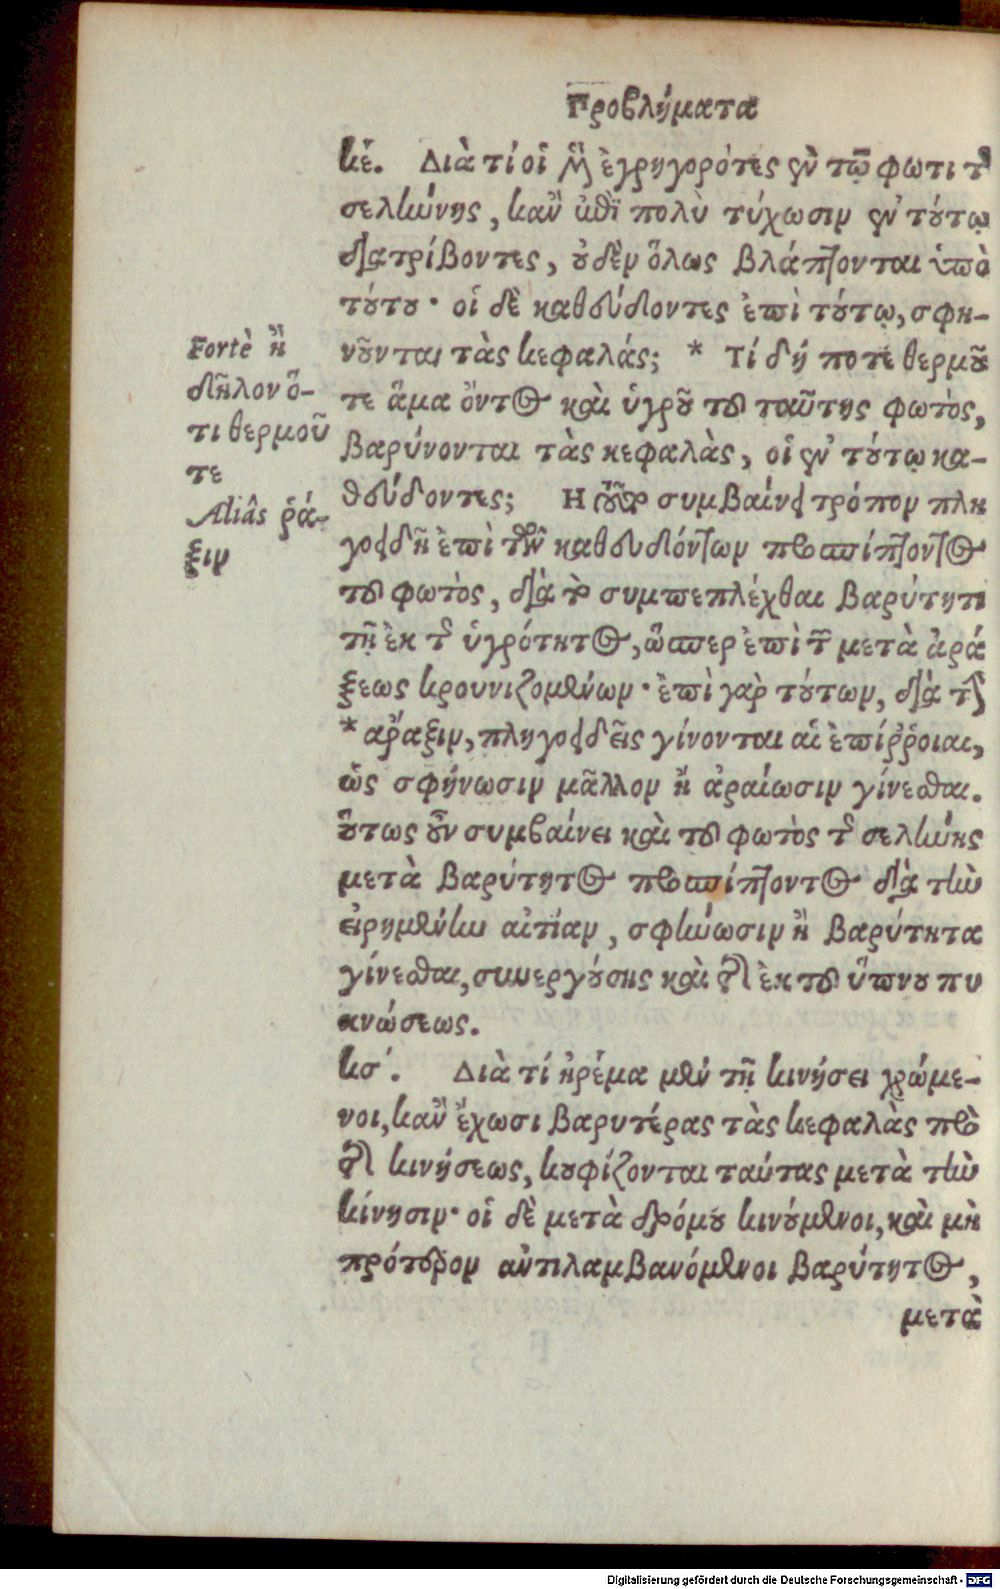 Προβλήματα
κέ. Διὰ τί οἱ μὲν ἐγρηγορότες ἐν τῷ φωτὶ τῆς
σελήνης, κἂν ἐπὶ πολὺ τύχωσιν ἐν τούτῳ
διατρίβοντες, οὐδὲν ὅλως βλάπτονται ὑπὸ
τούτου· οἱ δὲ καθεύδοντες ἐπὶ τούτῳ, σφη-
νοῦνται τὰς κεφαλάς; * Τί δή ποτε θερμοῦ
τε ἅμα ὄντος καὶ ὑγροῦ τοῦ ταύτης φωτὸς,
βαρύνονται τὰς κεφαλὰς, οἱ ἐν τούτῳ κα-
θεύδοντες; Η συμβαίνει τρόπον πλη
γοειδῆ ἐπὶ τῶν καθευδόντων προσπίπτοντος
τοῦ φωτὸς, διὰ τὸ συμπεπλέχθαι βαρύτητι
τῇ ἐκ τῆς ὑγρότητος, ὥσπερ ἐπὶ τῶν μετὰ ἀρά
ξεως κρουνιζομένων· ἐπὶ γὰρ τούτων, διὰ τὴν
* ἄραξιν, πληγοειδεῖς γίνονται αἱ ἐπίῤῥοιαι,
ὡς σφήνωσιν μᾶλλον ἢ ἀραίωσιν γίνεσθαι.
οὕτως οὖν συμβαίνει καὶ τοῦ φωτὸς τῆς σελήνης
μετὰ βαρύτητος προσπίπτοντος διὰ τὴν
εἰρημένην αἰτίαν, σφήνωσιν ἢ βαρύτητα
γίνεσθαι, συνεργούσης καὶ τῆς ἐκ τοῦ ὕπνου πυ
κνώσεως.
κς΄. Διὰ τί ἠρέμα μὲν τῇ κινήσει χρώμε-
νοι, κἂν ἔχωσι βαρυτέρας τὰς κεφαλὰς πρὸ
τῆς κινήσεως, κουφίζονται ταύτας μετὰ τὴν
κίνησιν· οἱ δὲ μετὰ δρόμου κινούμενοι, καὶ μὴ
πρότερον ἀντιλαμβανόμενοι βαρύτητος,
μετὰ
Fortè ἢ
δῆλον ὅ-
τι θερμοῦ
τε
Aliâs ῥά-
ξιν
Digitalisierung gefördert durch die Deutsche Forschungsgemeinschaft - DFG